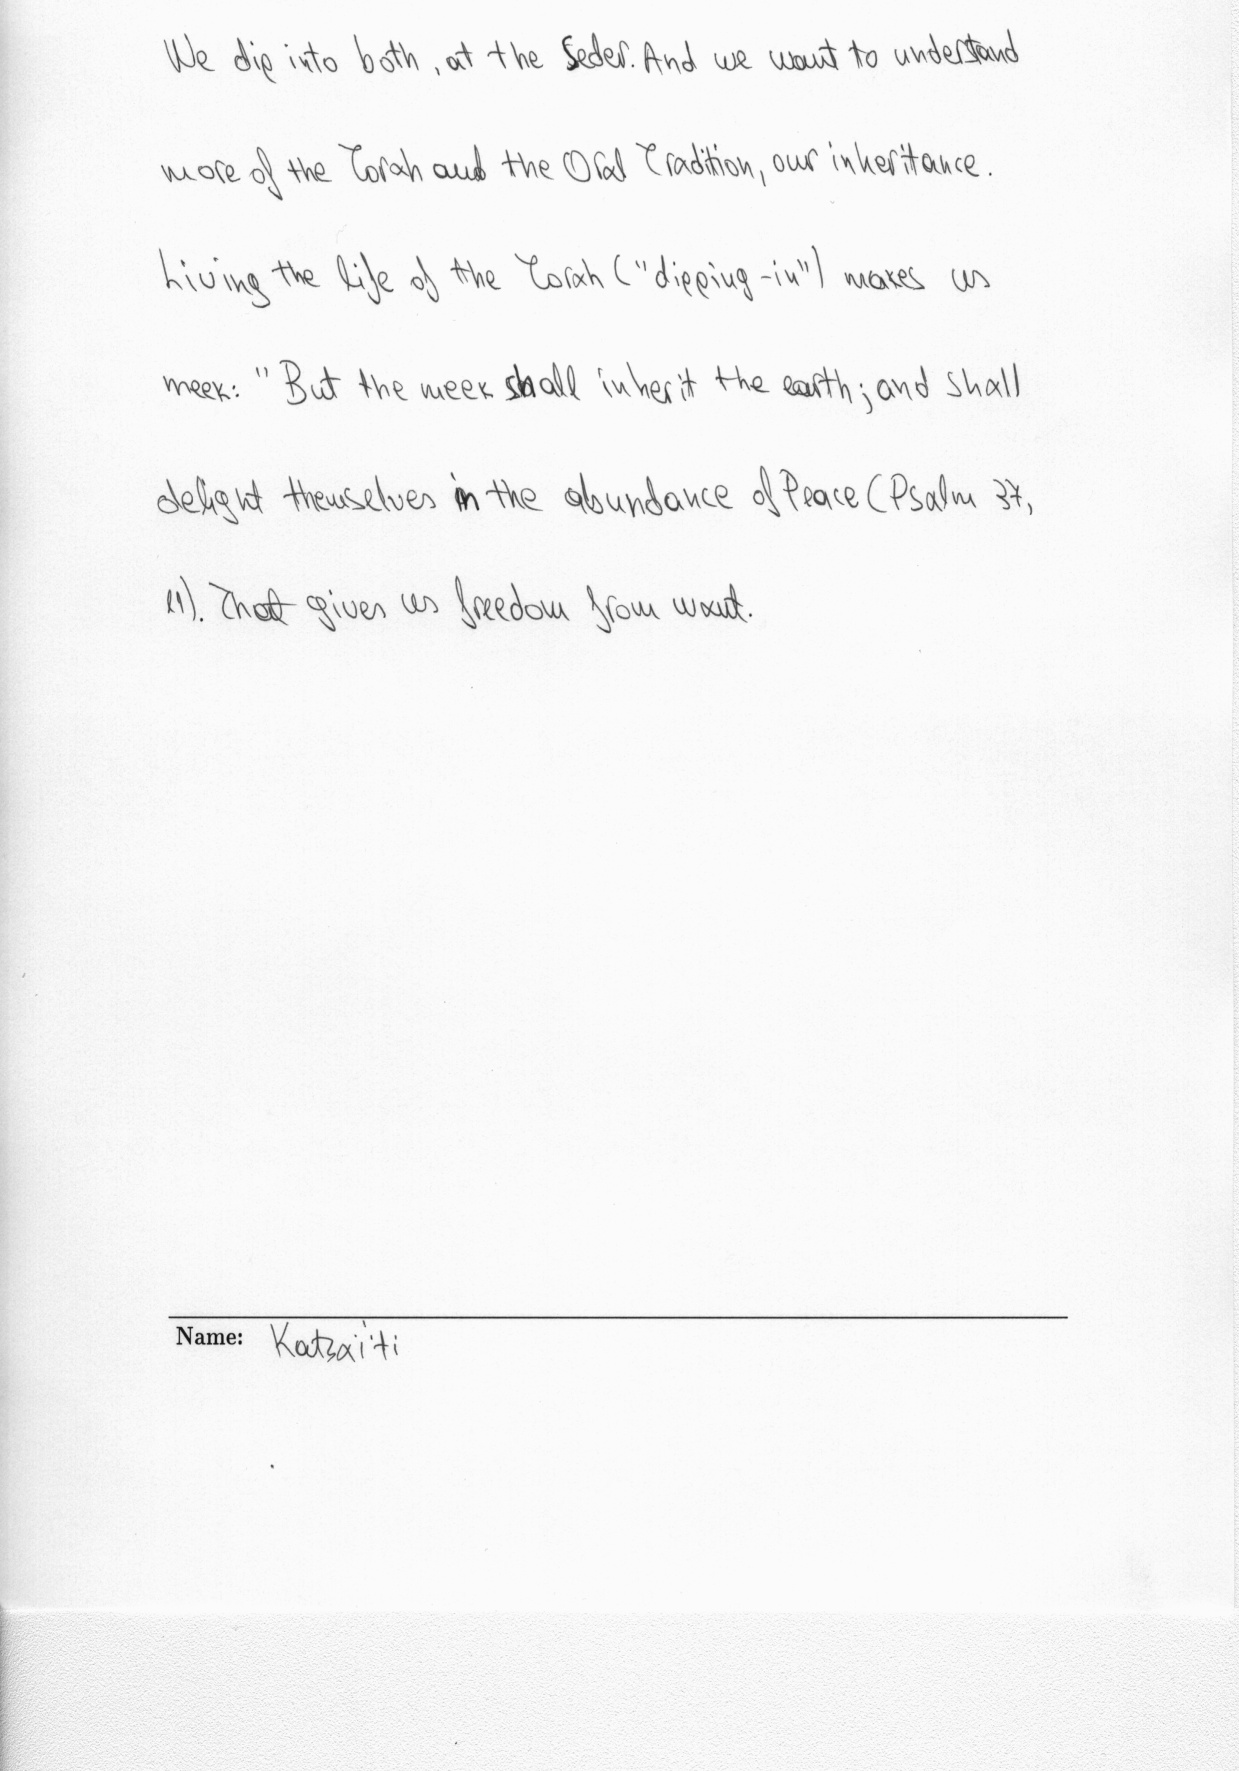 We dip into both, at the Seder. And we want to understand
more of the Torah and the Oral Tradition, our inheritance.
Living the life of the Torah ("dipping-in") makes us
meek: "But the meek shall inherit the earth; and shall
delight themselves in the abundance of Peace (Psalm 37,
11). That gives us freedom from want.
Name: Katsaïti